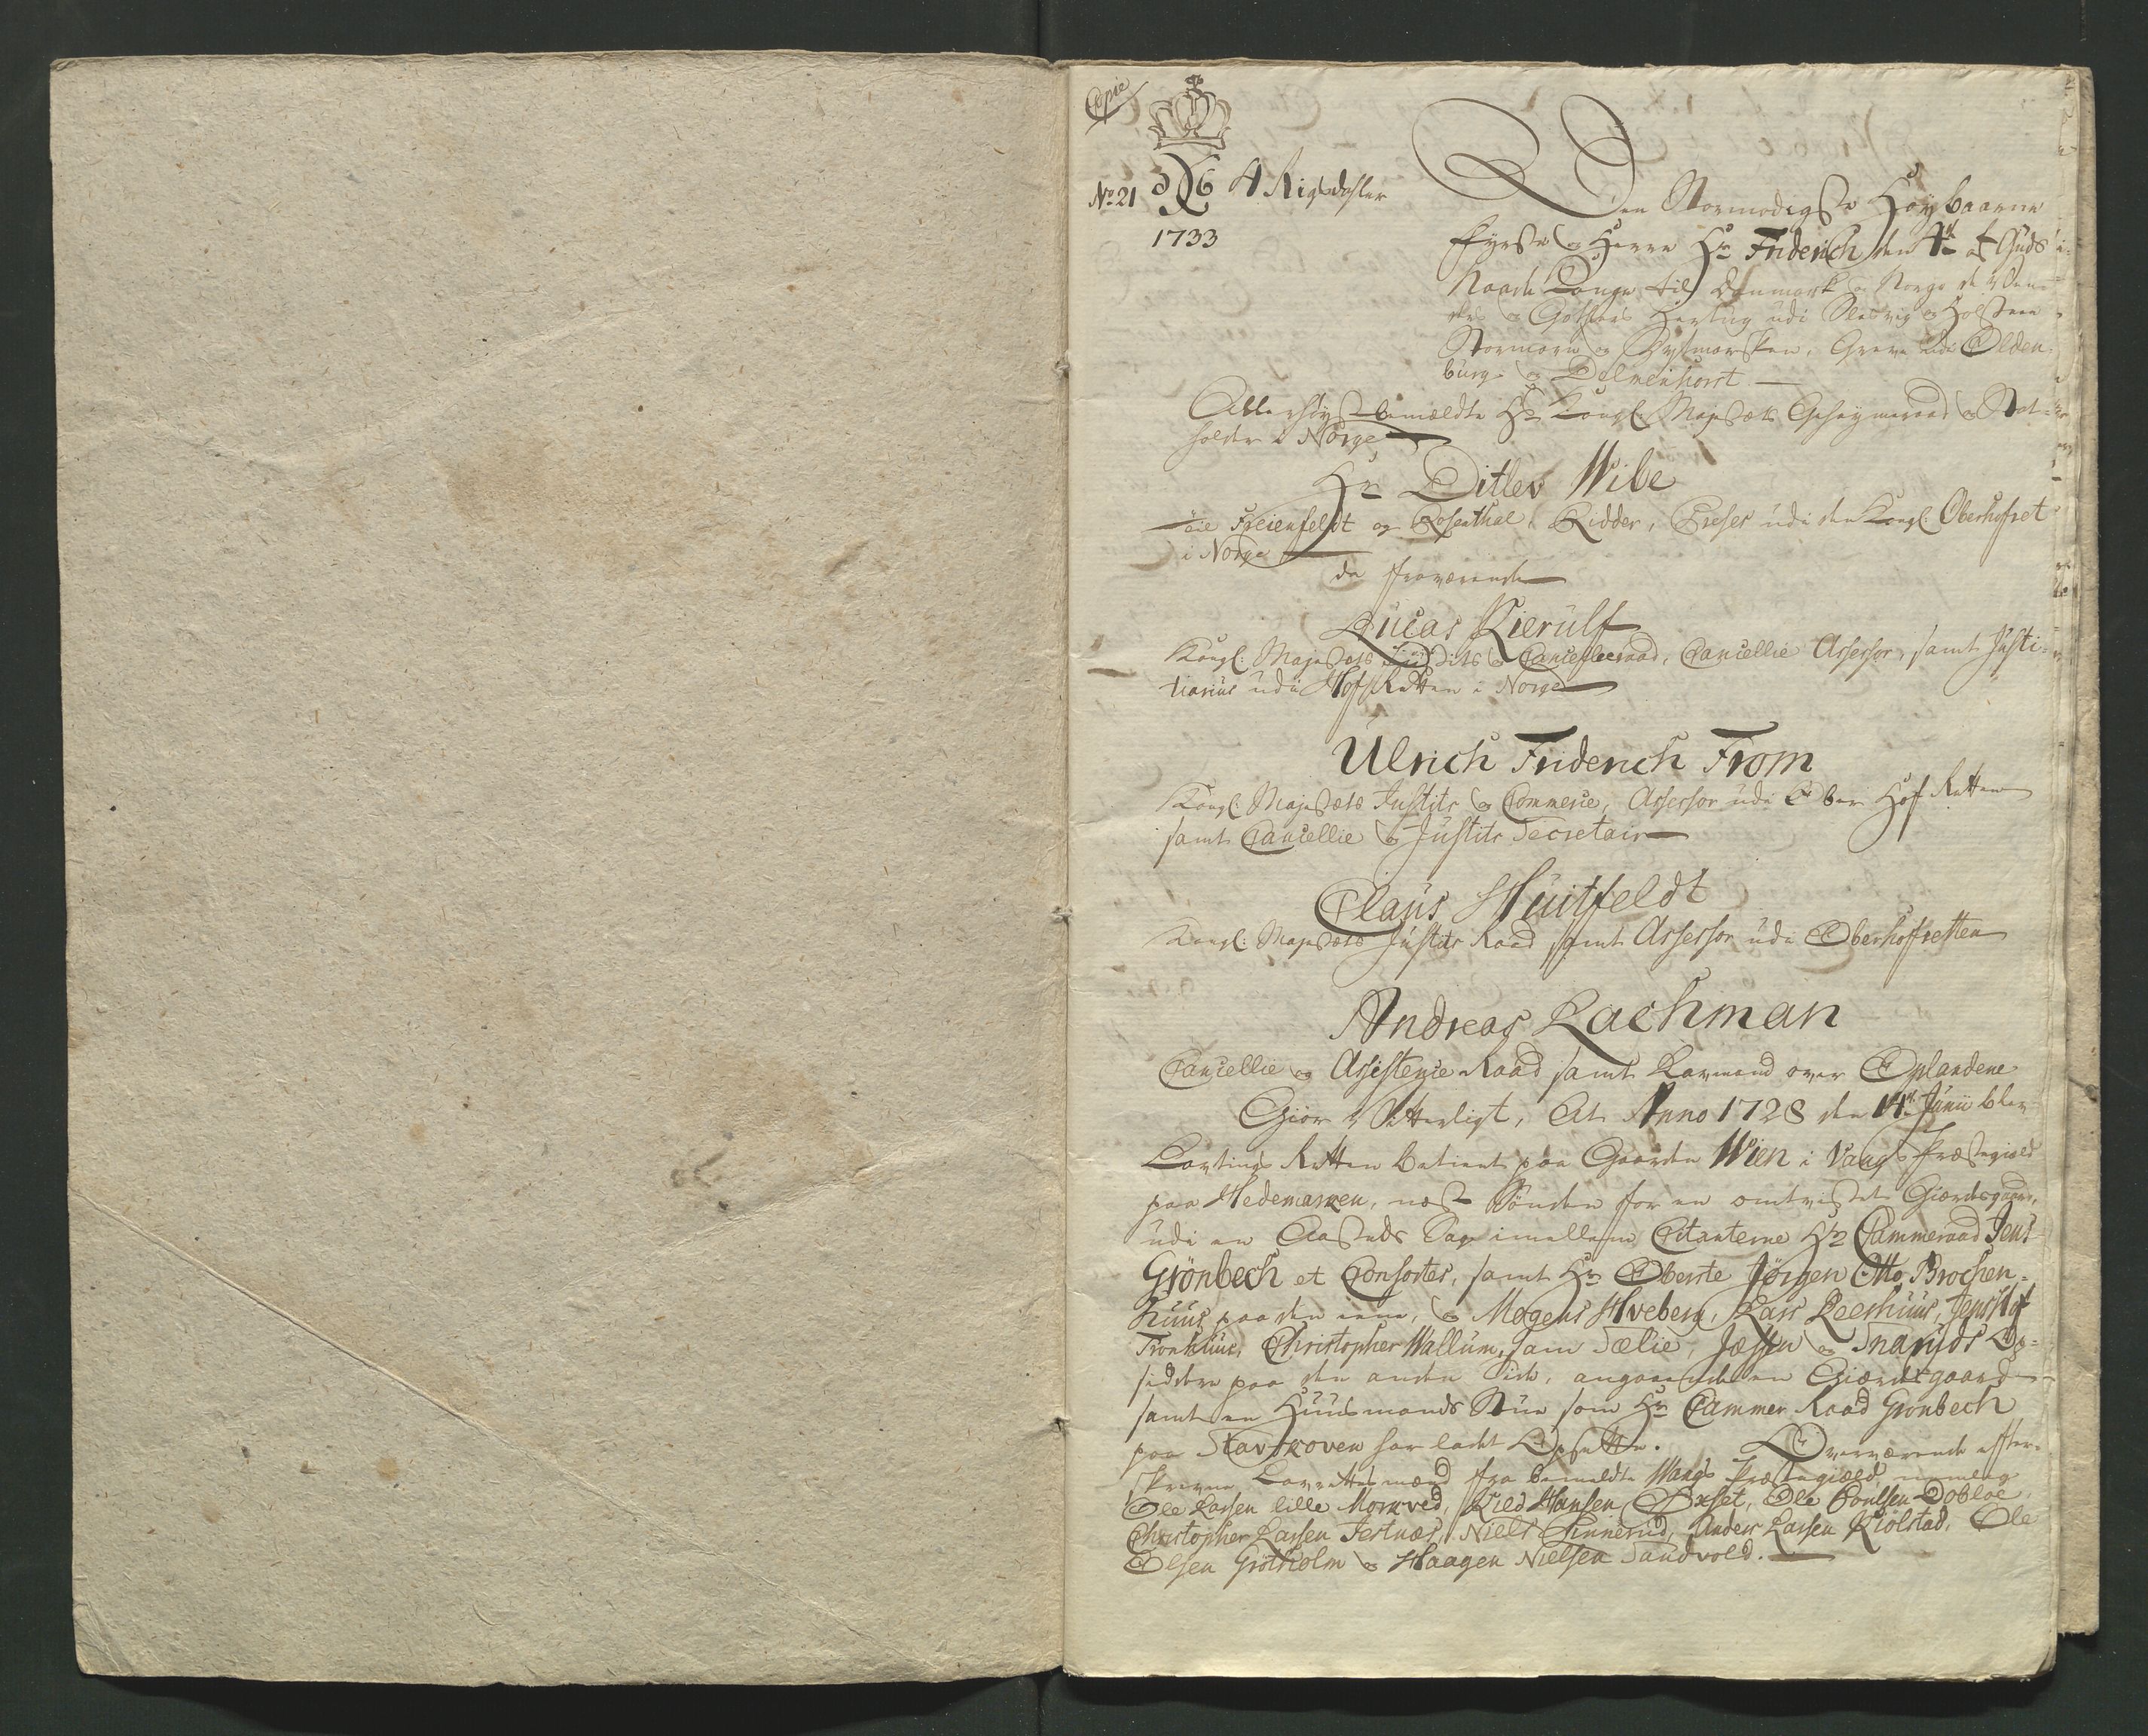 Copie
No 21 C6 4 Rigsdahler
1733
Den Stormægtigste Høybaarne
Fyrste og Herre Hr Friderich den 4de af Guds
Naade Konge til Danmark og Norge de Ven-
ders og Gothers Hertug udi Slesvig og Holsteen
Stormarn og Dytmarsken, Greve udi Olden-
burg og Delmenhorst
Allerhøystbemældte Hs Kongl: Majestæts Geheymeraad og Stat-
holder i Norge
Hr Ditlev Wibe
til Freienfeldt og Rosenthal, Ridder, Preses udi den Kongl: Oberhofret
i Norge
da fraværende
Lucas Kierulf
Kongl: Majestæts Justits og Cancelieraad, Cancellie Assessor, samt Justi-
tiarius udi HofRetten i Norge
Ulrich Friderich From
Kongl: Majestæts Justits og Commerse, Assessor udi Ober Hof Retten
samt Cancellie og Justits Secretair
Claus Huitfeldt
Kongl: Majestæts Justits Raad samt Assessor udi Oberhofretten
Andreas Lachman
Cancellie og Assistence Raad samt Lavmand over Oplandene
Giør Vitterligt, At Anno 1728 den 14de Junii blev
Lavtings Retten betient paa Gaarden Wien i Vangs Præstegield
paa Hedemarken, næst Sønden for en omtvistet Giærdesgaard,
udi en Aasteds Sag imellem Citanterne Hr Cammeraad Jens
Grönbech et Consortes, samt Hr Oberste Jörgen Otto Brochen-
huus paa den eene, og Mogens Hveberg, Lars Leerhuus, Jens Hof
Tronhuus, Christopher Wallum, sam Sælie, Jessen og Snaruds Op-
siddere paa den anden Side, angaaende en Giærdesgaard
samt en Huusmands Stue som Hr Cammer Raad Grönbech
paa Stavskoven har ladet Opsette. Overværende efter-
skrevne Lavrettesmænd fra bemeldte Wangs Præstegiæld, nemlig
Ole Larsen lille Morkved, Kield Hansen Øxset, Ole Poulsen Dobloe
Christopher Larsen Jestnæs, Niels Finnerud, Anders Larsen Kiölstad, Ole
Olsen Grötholm og Haagen Nielsen Sandvold.